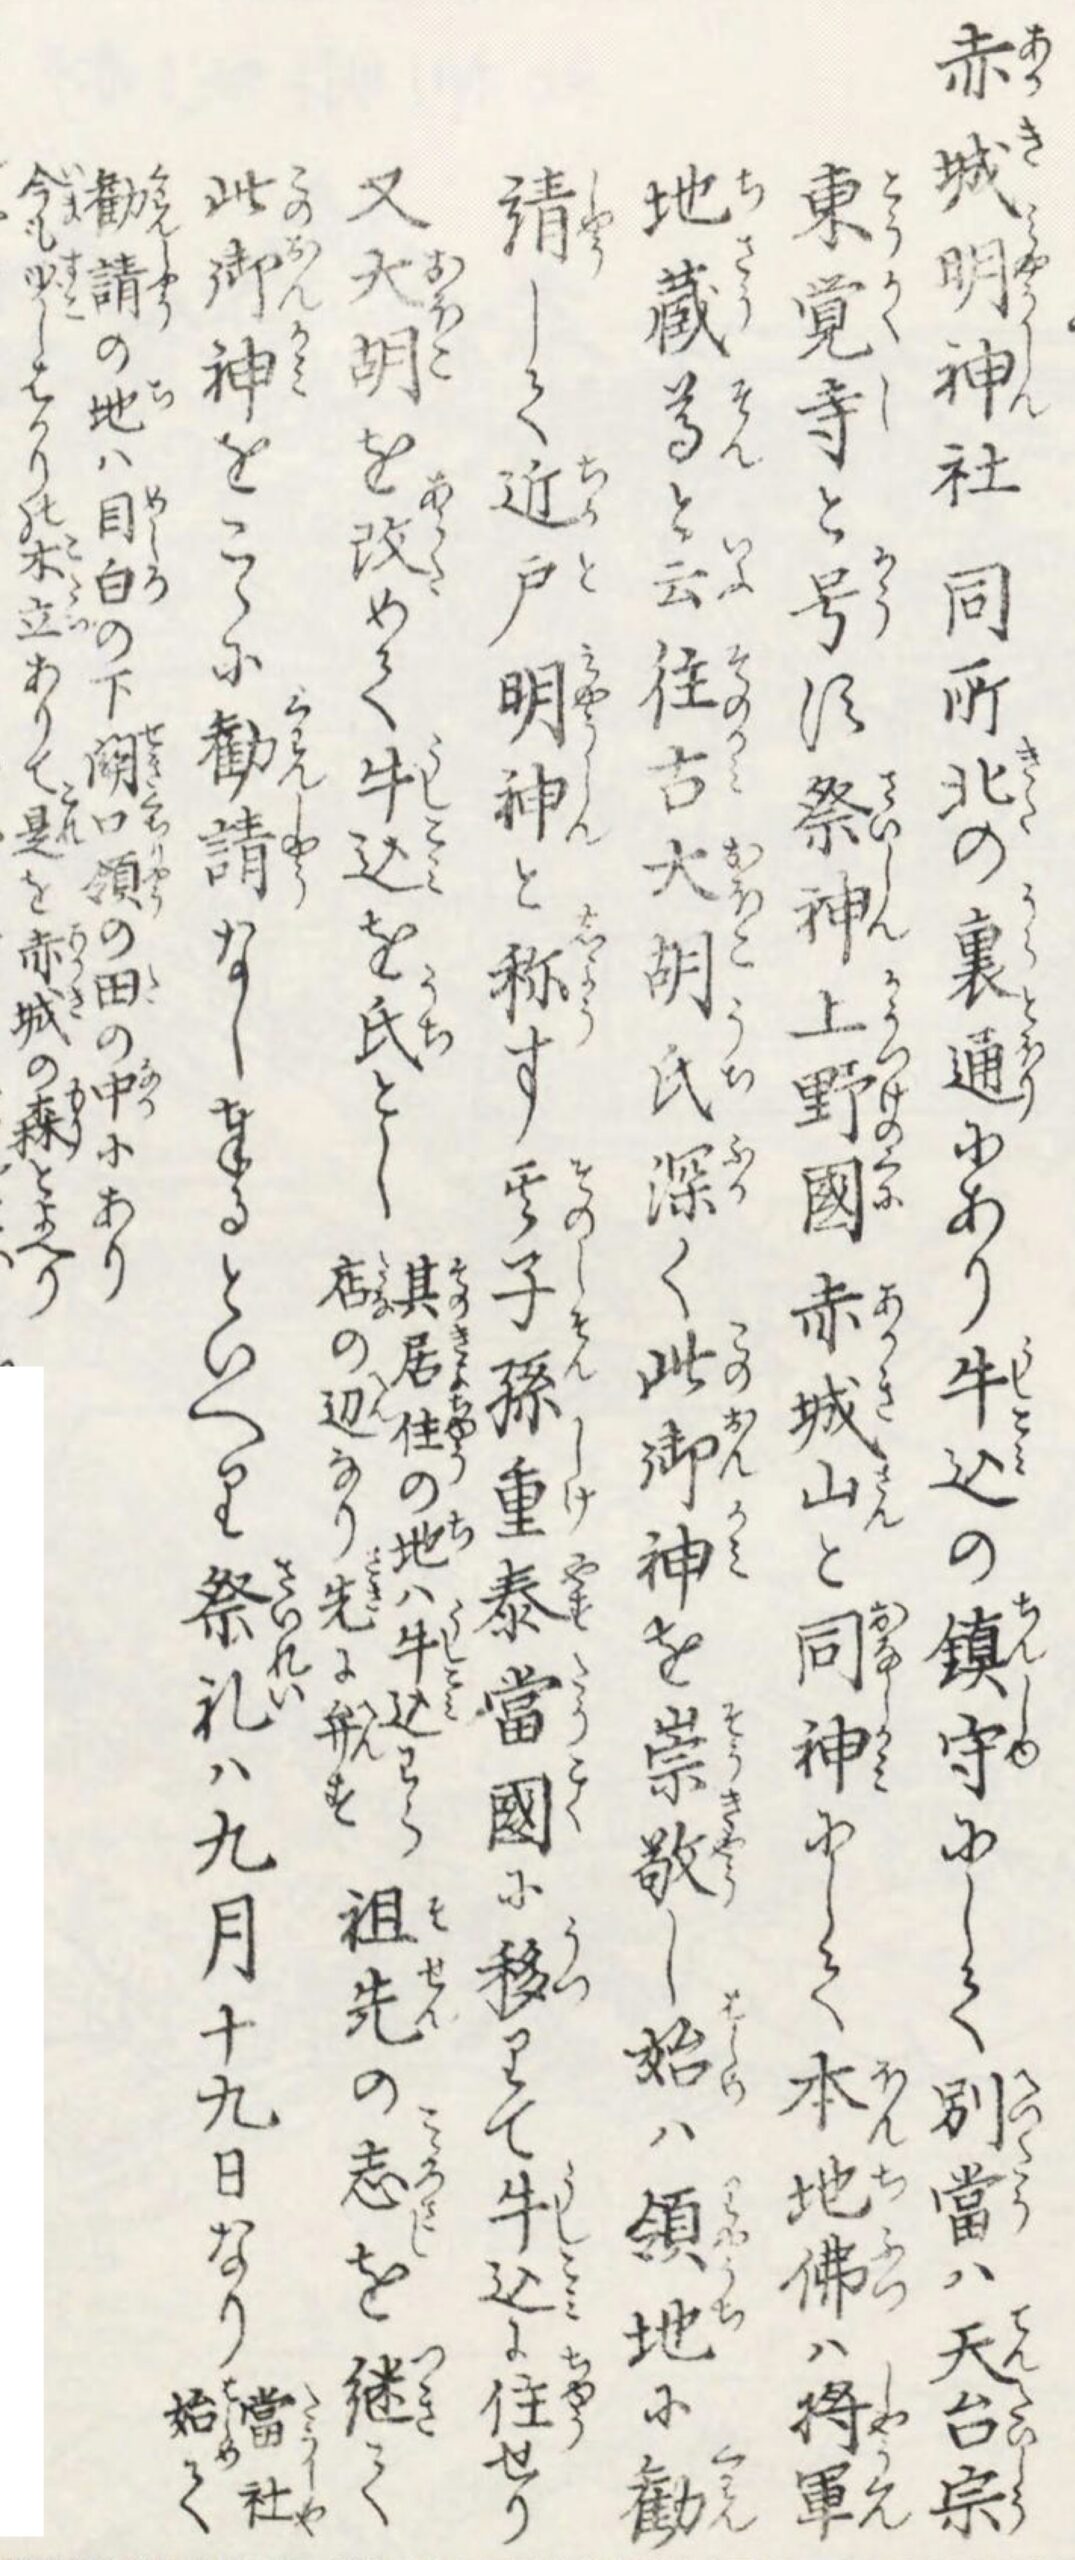 赤城明神社 同所北の裏通にあり牛込の鎮守にして別當ハ天台宗
東覚寺と号す祭神上野國赤城山と同神にして本地佛ハ将軍
地蔵尊と云往古大胡氏深く此御神を崇敬し始ハ領地に勧
請して近戸明神と称す其子孫重泰當國に移りて牛込に住せり
又大胡を改めて牛込を氏とし
其居住の地ハ牛込わら
店の辺なり先に弁す
祖先の志を継て
此御神をこゝに勧請なし奉るといへり祭礼ハ九月十九日なり
當社
始て
勧請の地ハ目白の下関口領の田の中にあり
今も少しはかりの木立ありて是を赤城の森とよへり